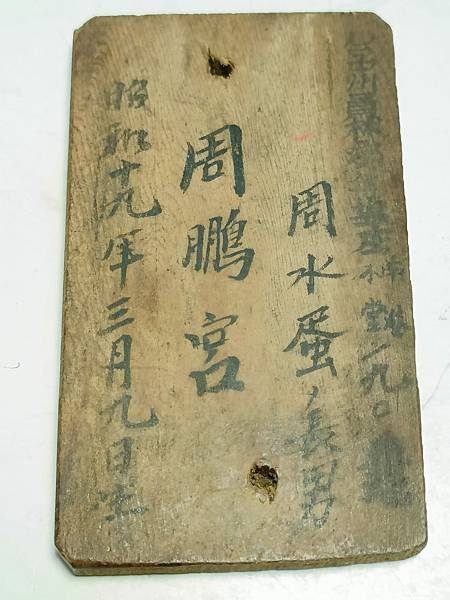 台中州員林郡庄一九〇
周水蛋ノ長男
周鵬宮
昭和十九年三月九日生